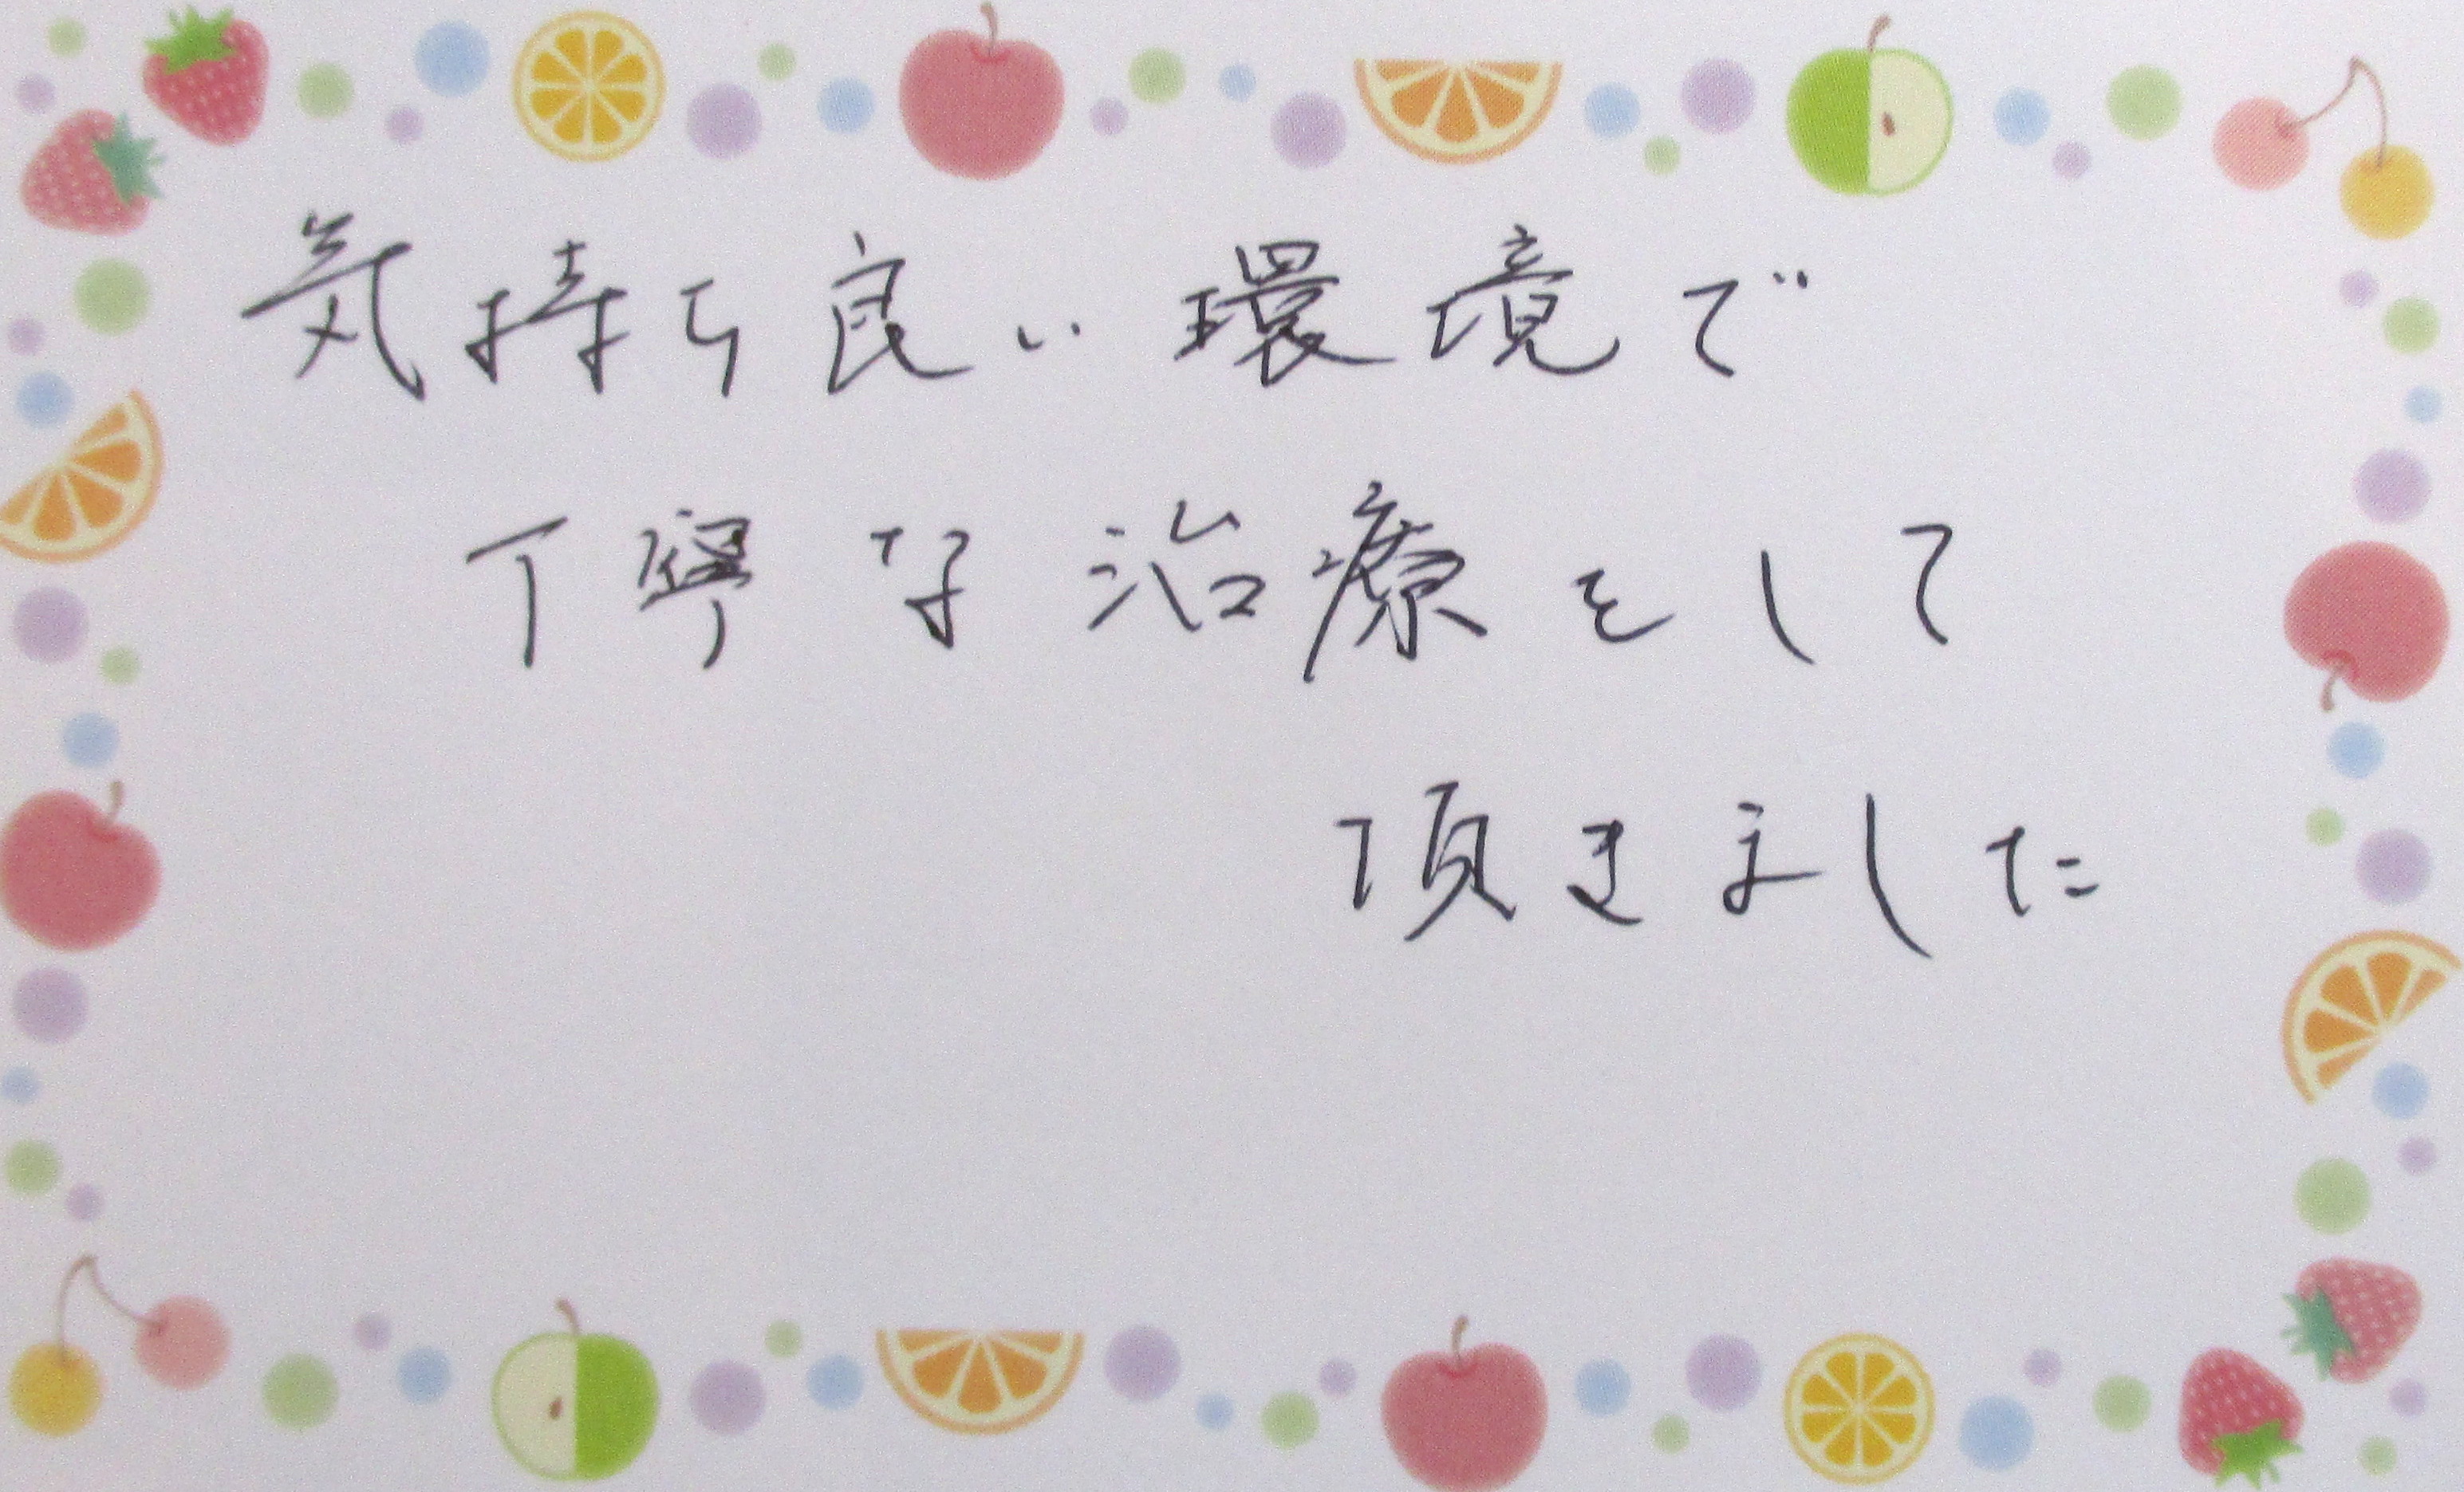 気持ち良い環境で
丁寧な治療をして
頂きました